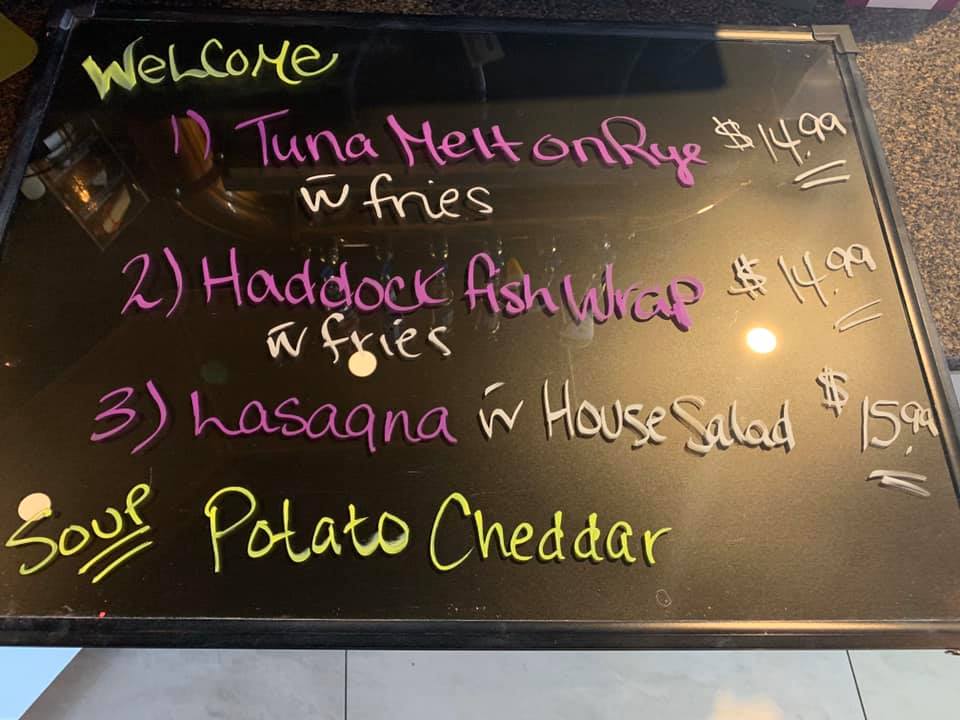 Welcome
1) Tuna Melt on Rye $14.99
w̄ fries
2) Haddock fish Wrap $14.99
w̄ fries
3) Lasagna w̄ House Salad $15.99
Soup Potato Cheddar